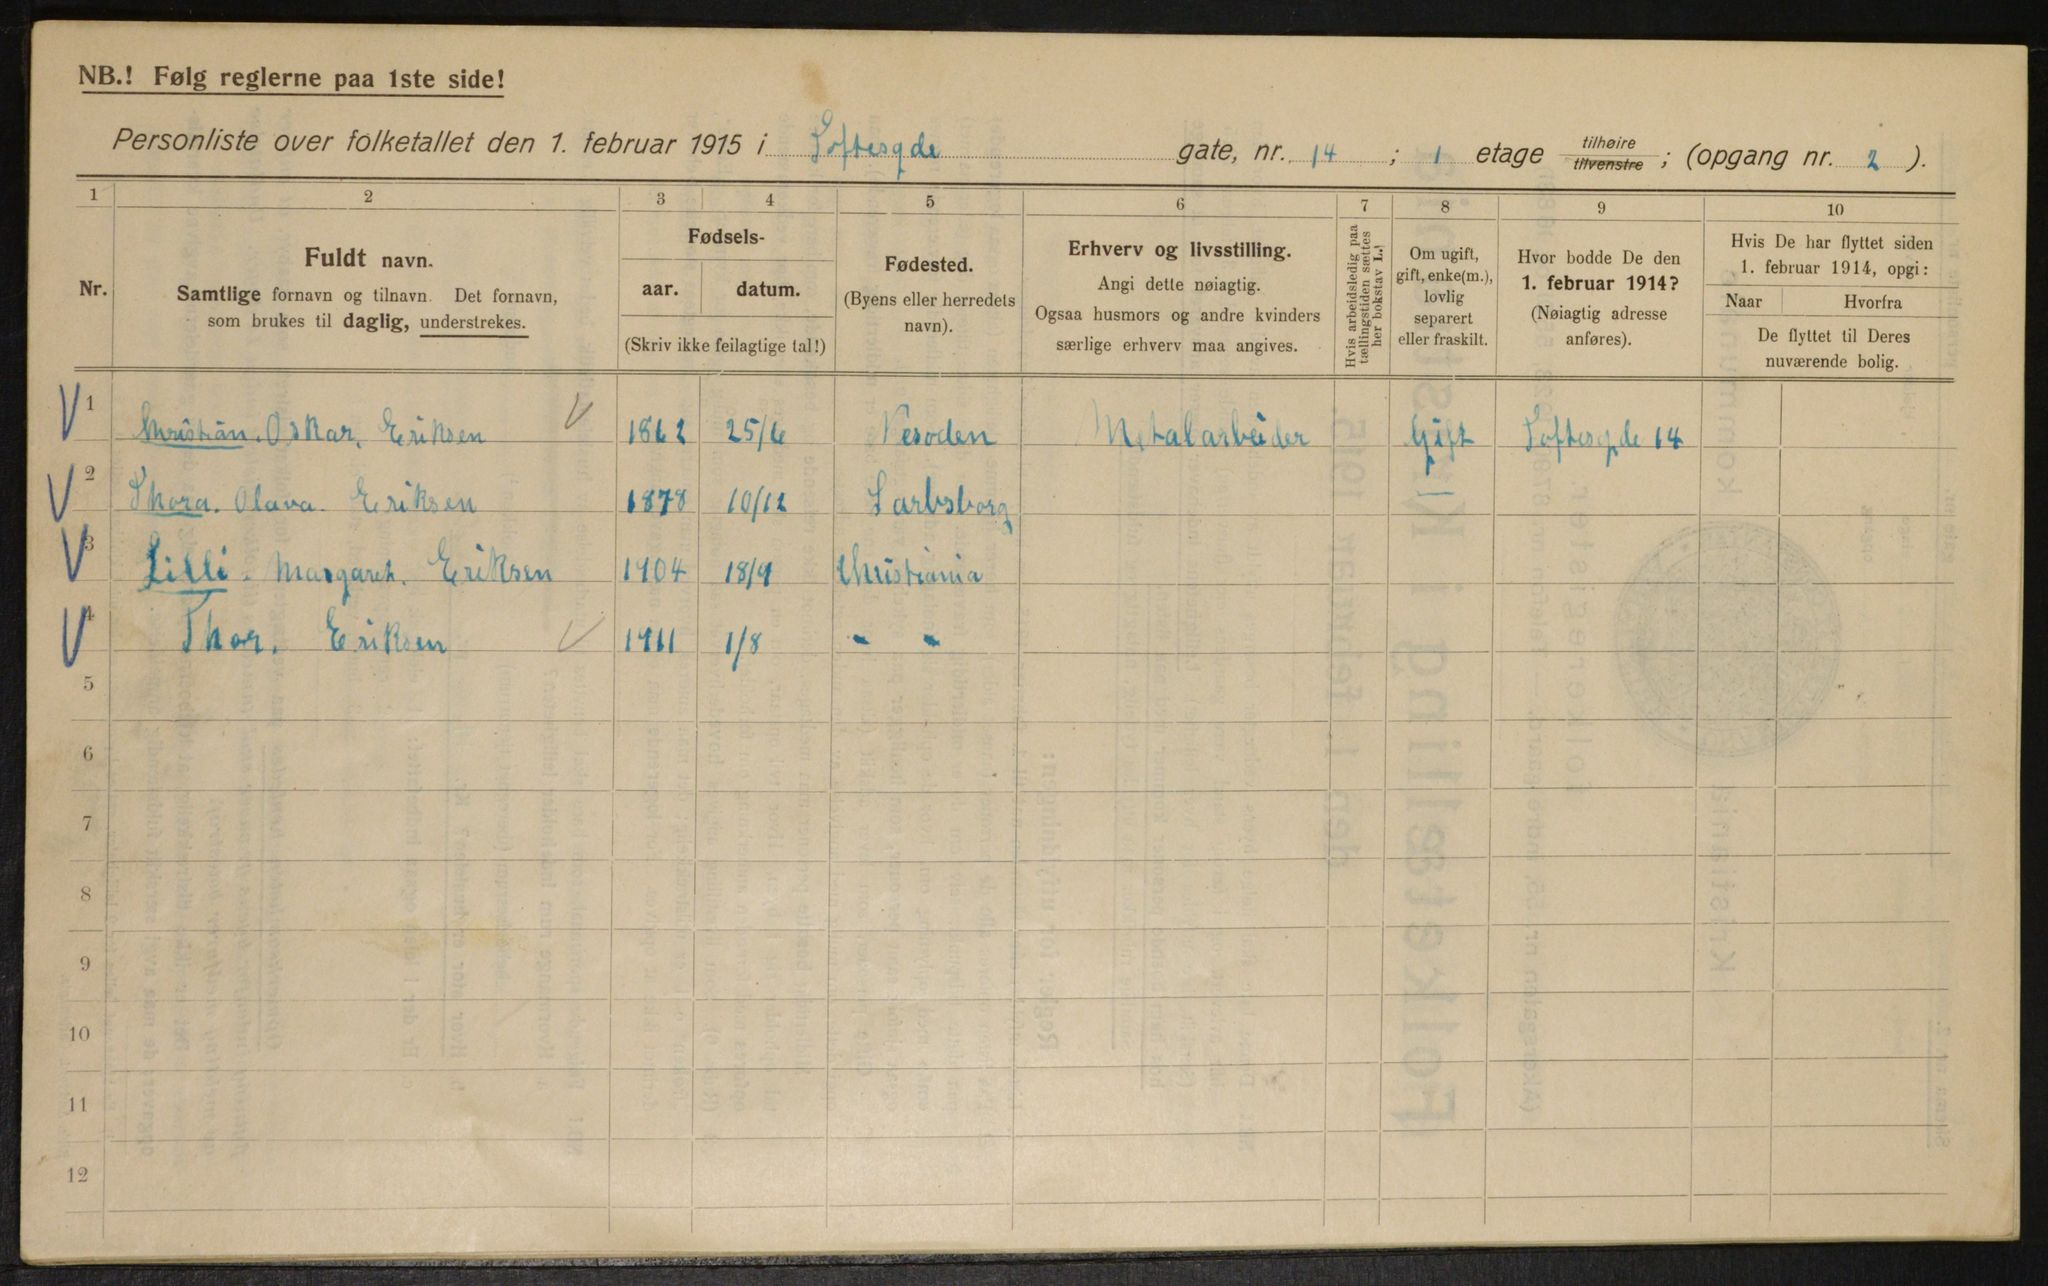 NB.! Følg reglerne paa 1ste side!
Personliste over folketallet den 1. februar 1915 i Softesgde gate, nr. 14 ; 1 etage tilhøire tilvenstre ; (opgang nr. 2 ).
1 2 3 4 5 6 7 8 9 10
Nr.
Fuldt navn.
Samtlige fornavn og tilnavn. Det fornavn,
som brukes til daglig, understrekes.
Fødsels-
aar. datum.
(Skriv ikke feilagtige tal!)
Fødested.
(Byens eller herredets
navn).
Erhverv og livsstilling.
Angi dette nøiagtig.
Ogsaa husmors og andre kvinders
særlige erhverv maa angives.
Hvis arbeidsledig paa
tællingstiden sættes
her bokstav L.!
Om ugift,
gift, enke(m.),
lovlig
separert
eller fraskilt.
Hvor bodde De den
1. februar 1914?
(Nøiagtig adresse
anføres).
Hvis De har flyttet siden
1. februar 1914, opgi:
Naar Hvorfra
De flyttet til Deres
nuværende bolig.
1 Christian. Oskar. Eriksen 1862 25/6 Nesoden Metalarbeider Gift Softesgde 14
2 Thora. Olava. Eriksen 1878 10/12 Sarbsborg
3 Lilli. Margaret. Eriksen 1904 18/9 Christiania
4 Thor. Eriksen 1911 1/8 - -
5
6
7
8
9
10
11
12